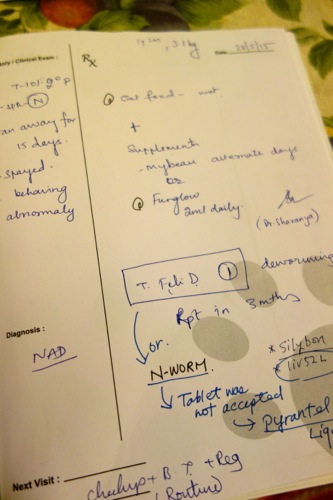 3.1 kg
Date: 26/5/15
ory / Clinical Exam:
Rx
T-101.9° F
N
an away for
15 days.
Spayed.
behaving
abnormaly
① Cat food - wet
+
Supplements
- Mybeau alternate days
or
② Furglow
2ml daily.
(Dr. Sharanya)
T. Feli D ① deworming
Rpt in 3 mths
or.
N-WORM.
Tablet was
not accepted
→ Pyrantel
Liq
* Silybon
* liv52L
Diagnosis:
NAD
Next Visit:
checkup + B.T. + Reg
(Routine)